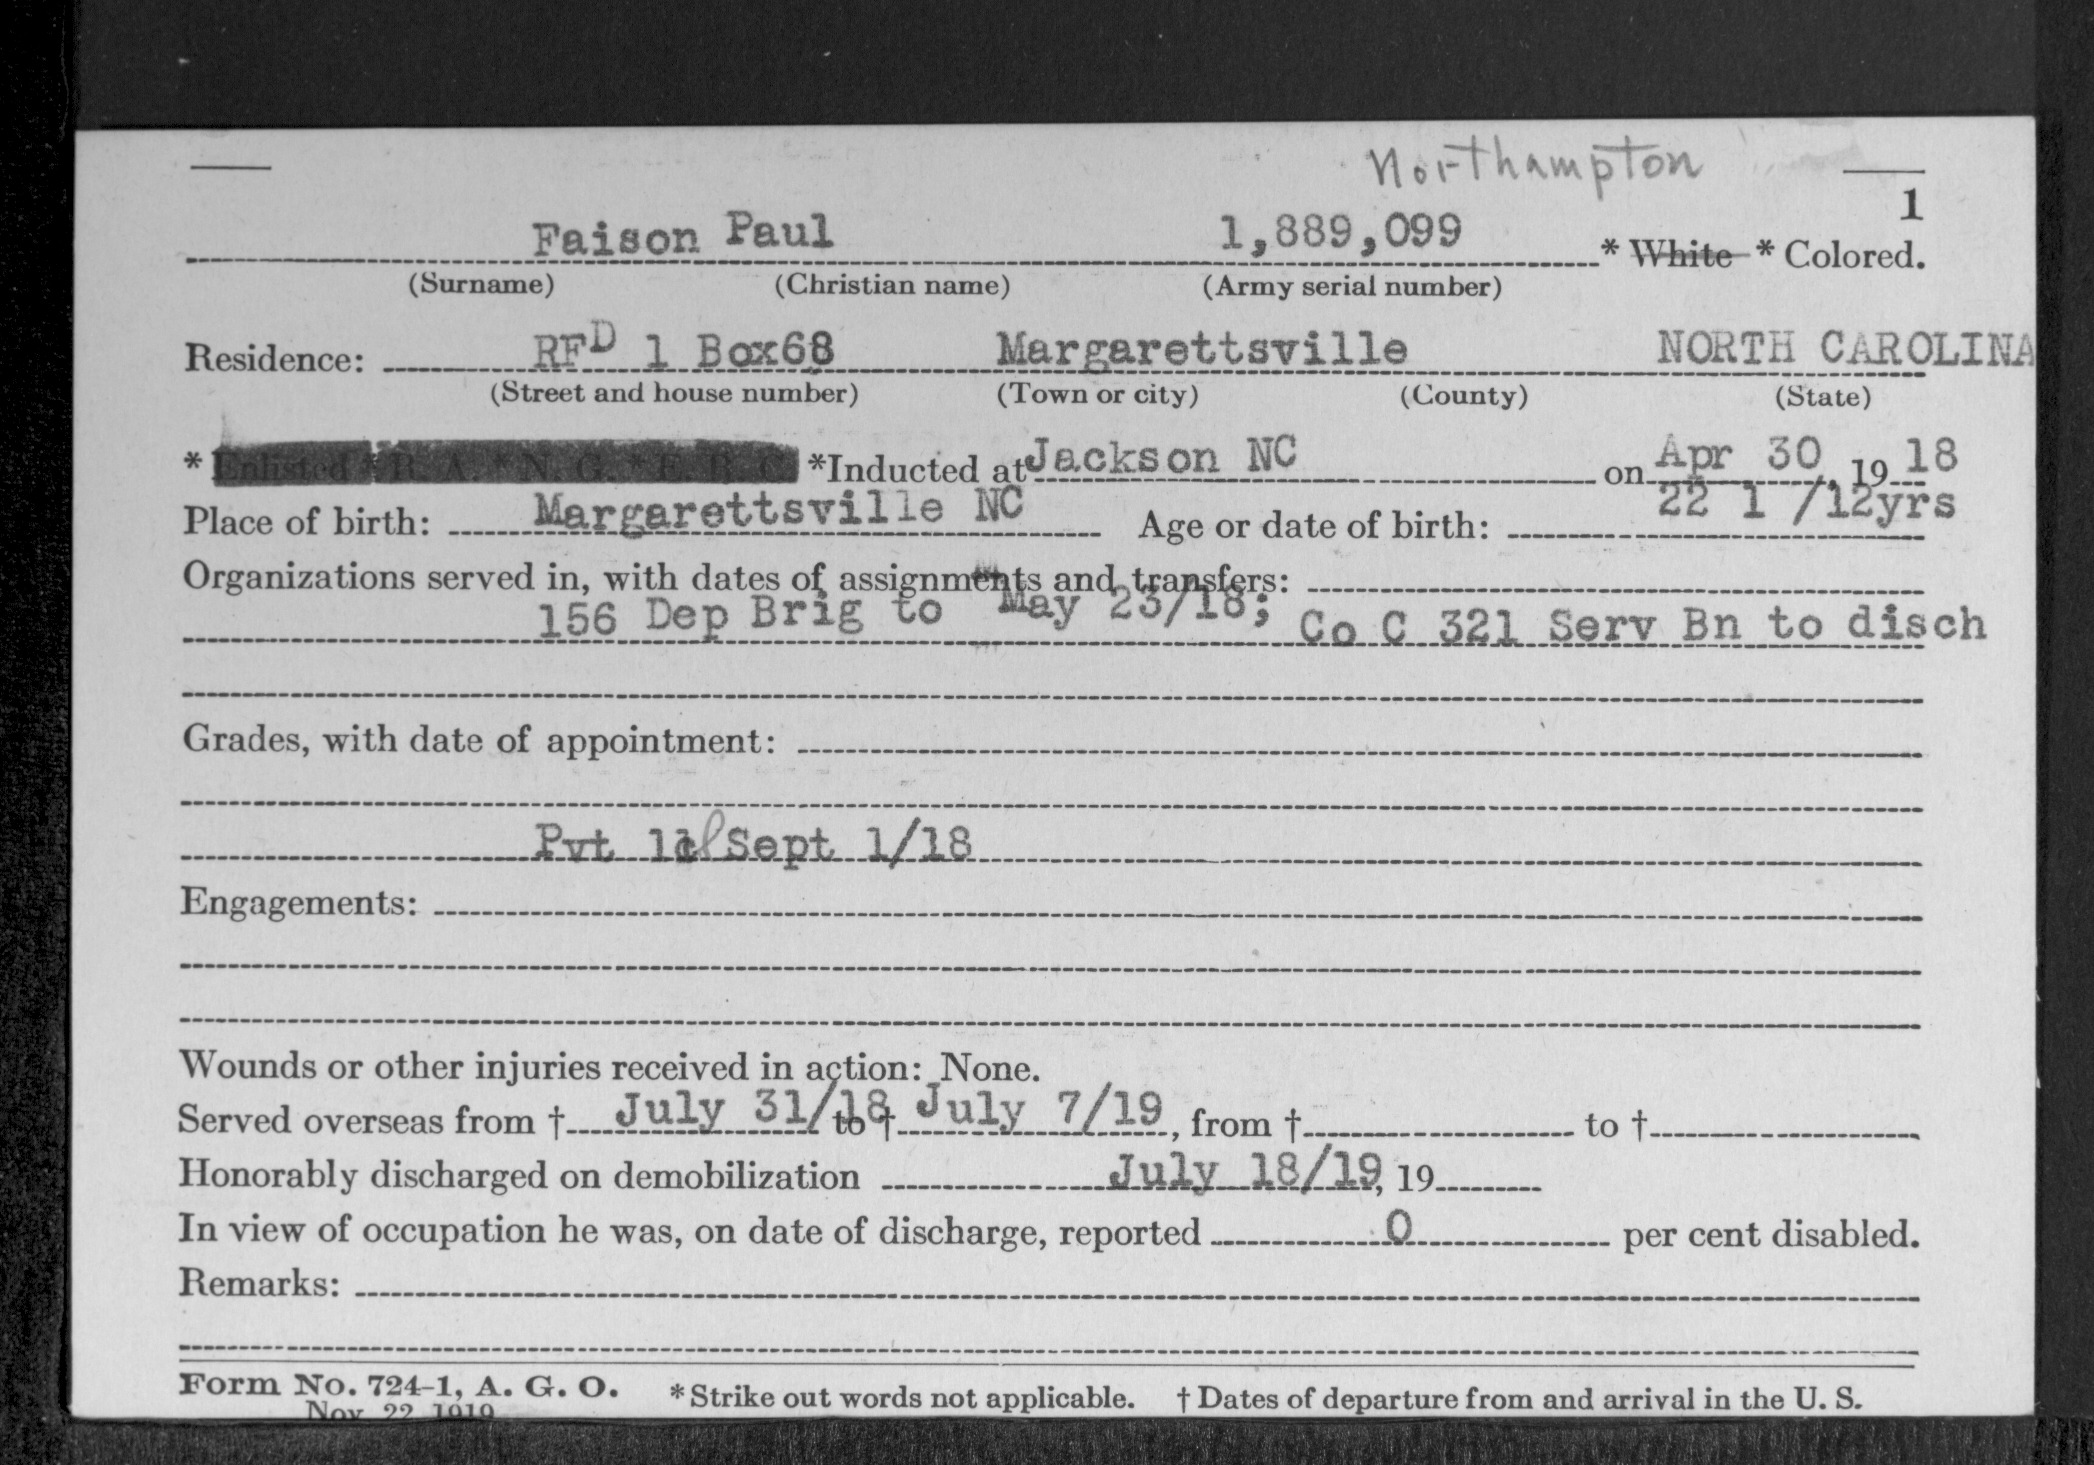 Northampton
1
Faison Paul 1,889,099 * White * Colored.
(Surname) (Christian name) (Army serial number)
Residence: RFD 1 Box68 Margarettsville NORTH CAROLINA
(Street and house number) (Town or city) (County) (State)
* Enlisted * R. A. * N. G. * E. R. C. *Inducted at Jackson NC on Apr 30, 19 18
Place of birth: Margarettsville NC Age or date of birth: 22 1 /12yrs
Organizations served in, with dates of assignments and transfers:
156 Dep Brig to May 23/18; Co C 321 Serv Bn to disch
Grades, with date of appointment:
Pvt 1cl Sept 1/18
Engagements:
Wounds or other injuries received in action: None.
Served overseas from † July 31/18 to † July 7/19, from † to †
Honorably discharged on demobilization July 18/19, 19
In view of occupation he was, on date of discharge, reported 0 per cent disabled.
Remarks:
Form No. 724-1, A. G. O. *Strike out words not applicable. † Dates of departure from and arrival in the U. S.
Nov. 22, 1919